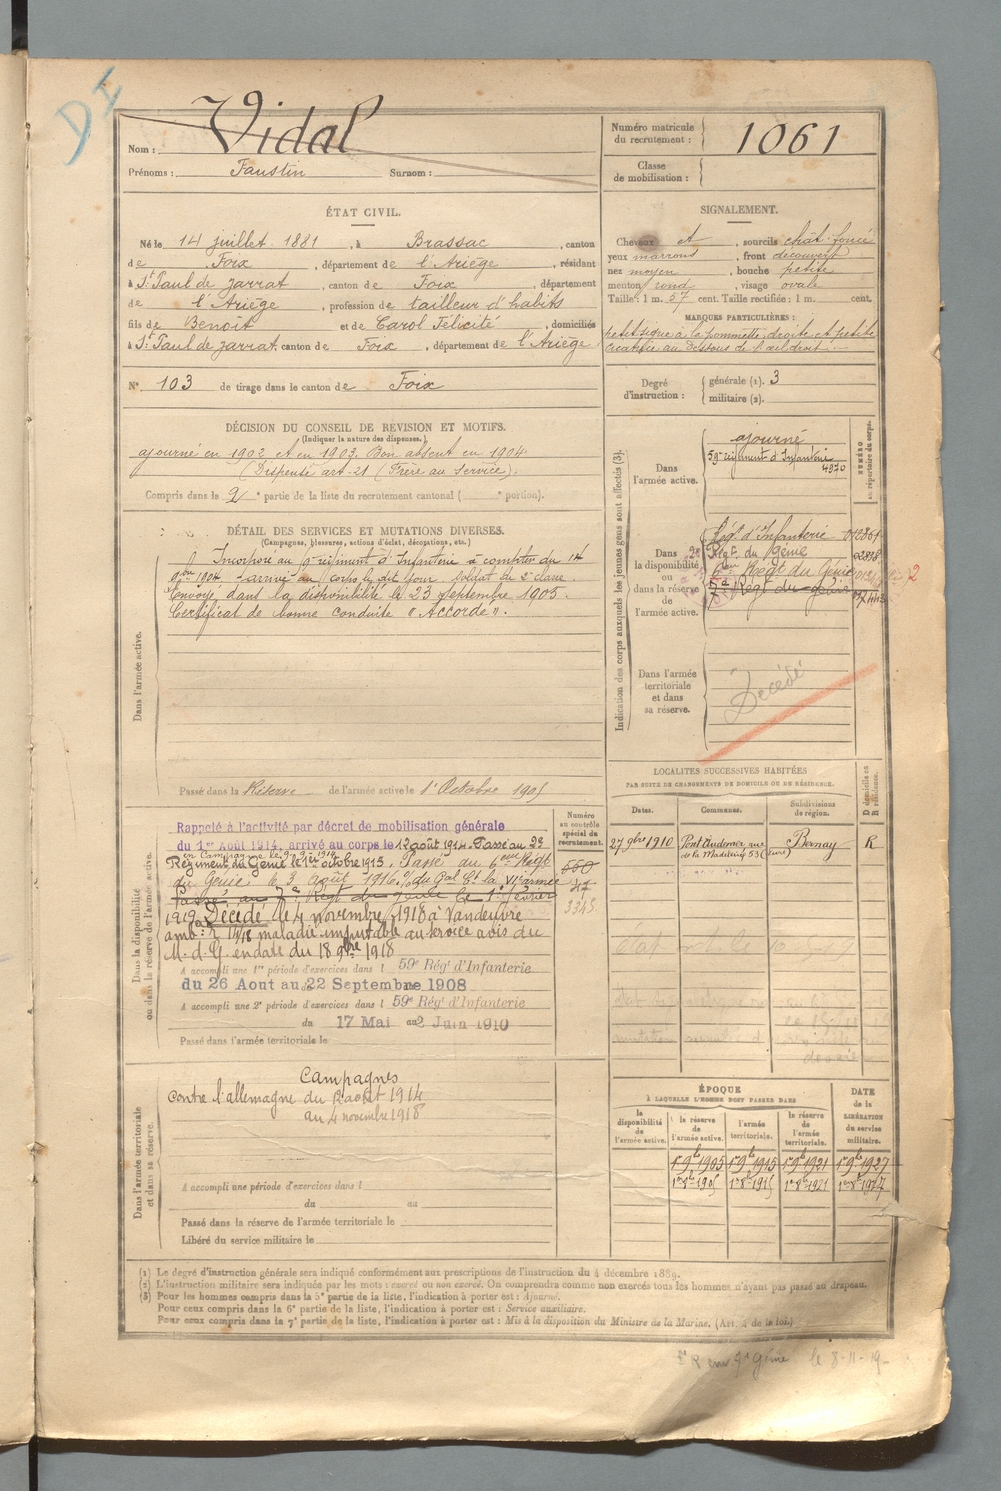 DI
Nom : Vidal
Prénoms : Faustin Surnom :
Numéro matricule du recrutement : 1061
Classe de mobilisation :
ÉTAT CIVIL.
Né le 14 juillet 1881, à Brassac, canton
de Foix, département de l'Ariège, résidant
à St Paul de Jarrat, canton de Foix, département
de l'Ariège, profession de tailleur d'habits
fils de Benoit et de Carol Félicité, domiciliés
à St Paul de Jarrat, canton de Foix, département de l'Ariège
N° 103 de tirage dans le canton de Foix
SIGNALEMENT.
Cheveux et, sourcils chât. foncé
yeux marrons, front découvert
nez moyen, bouche petite
menton rond, visage ovale
Taille : 1 m. 57 cent. Taille rectifiée : 1 m. cent.
MARQUES PARTICULIÈRES :
petit signe à la pommette droite et petite
cicatrice au dessous de l'œil droit.
Degré d'instruction : générale (1). 3
militaire (2).
DÉCISION DU CONSEIL DE REVISION ET MOTIFS.
(Indiquer la nature des dispenses.)
ajourné en 1902 et en 1903. Bon absent en 1904
(Dispensé art. 21 (Frère au service).
Compris dans le 2e partie de la liste du recrutement cantonal ( e portion).
DÉTAIL DES SERVICES ET MUTATIONS DIVERSES.
(Campagnes, blessures, actions d'éclat, décorations, etc.)
Dans l'armée active.
Incorporé au régiment d'Infanterie à compter du 14
9bre 1904, arrivé au corps le dit jour, soldat de 2e classe.
Envoyé dans la disponibilité le 23 septembre 1905.
Certificat de bonne conduite "Accordé".
Passé dans la Réserve de l'armée active le 1er Octobre 1905
Indication des corps auxquels les jeunes gens sont affectés (3).
NUMÉRO au répertoire du corps.
Dans l'armée active.
ajourné
59e régiment d'Infanterie
4970
Dans la disponibilité ou dans la réserve de l'armée active.
Régt d'Infanterie
Régt du génie
6eme Regt du Génie
7e Régt du génie
Dans l'armée territoriale et dans sa réserve.
Décédé
LOCALITÉS SUCCESSIVES HABITÉES
PAR SUITE DE CHANGEMENTS DE DOMICILE OU DE RÉSIDENCE.
Dates. Communes. Subdivisions de région. D domicile ou R résidence.
27 9bre 1910 Pont Audemer, rue de la Madeleine 53 (Eure) Bernay R
Dans la disponibilité ou dans la réserve de l'armée active.
Numéro au contrôle spécial du recrutement.
Rappelé à l'activité par décret de mobilisation générale
du 1er Août 1914, arrivé au corps le 12 août 1914. Passé au 2e
Régiment du Génie le 1er octobre 1915. Passé au 6eme Regt
du Génie le 3 Août 1916. O/ du Gal Ct la VIe armée
Passé au 7e Regt du génie le 1er février
1919. Décédé le 4 novembre 1918 à Vandeuvre
amb: 2 maladie imputable au service avis du
M. d. G. en date du 18 9bre 1918
3345
A accompli une 1re période d'exercices dans l 59e Régt d'Infanterie
du 26 Aout au 22 Septembre 1908
A accompli une 2e période d'exercices dans l 59e Régt d'Infanterie
du 17 Mai au 2 Juin 1910
Passé dans l'armée territoriale le
Dans l'armée territoriale et dans sa réserve.
Campagnes
contre l'allemagne du 12 août 1914
au 4 novembre 1918
A accompli une période d'exercices dans l
du au
Passé dans la réserve de l'armée territoriale le
Libéré du service militaire le
ÉPOQUE
À LAQUELLE L'HOMME DOIT PASSER DANS
DATE de la LIBÉRATION du service militaire.
la disponibilité de l'armée active. la réserve de l'armée active. l'armée territoriale. la réserve de l'armée territoriale.
1er 9b 1905 1er 9b 1915 1er 9b 1921 1er 9b 1927
1er 8b 1905 1er 8b 1915 1er 8b 1921 1er 8b 1927
(1) Le degré d'instruction générale sera indiqué conformément aux prescriptions de l'instruction du 4 décembre 1889.
(2) L'instruction militaire sera indiquée par les mots : exercé ou non exercé. On comprendra comme non exercés tous les hommes n'ayant pas passé au drapeau.
(3) Pour les hommes compris dans la 5e partie de la liste, l'indication à porter est : Ajourné.
Pour ceux compris dans la 6e partie de la liste, l'indication à porter est : Service auxiliaire.
Pour ceux compris dans la 7e partie de la liste, l'indication à porter est : Mis à la disposition du Ministre de la Marine. (Art. 4 de la loi.)
le 8-11-19